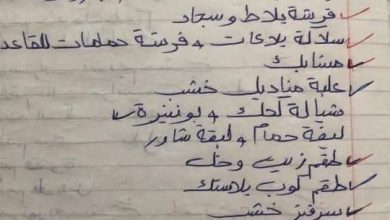 فرشة بلاط وسجاد
سلالة بلاعات + فرشة حمامات للقاعدة
مشابك
علبة مناديل خشب
شيالة لحلك + بونبيرة
ليفة حمام + ليفة شاور
طقم زيت وخل
طقم كوب بلاستك
سرفيز خشب